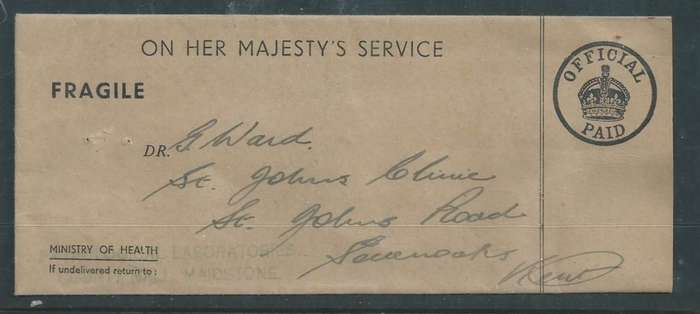 ON HER MAJESTY'S SERVICE
OFFICIAL
PAID
FRAGILE
DR. G Ward.
St. Johns Clinic
St. Johns Road
Sevenoaks
Kent
MINISTRY OF HEALTH LABORATORIES
If undelivered return to: MAIDSTONE